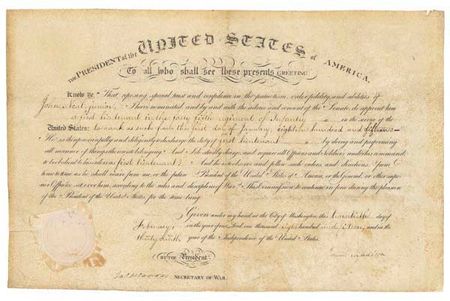 THE PRESIDENT of the UNITED STATES of AMERICA,
To all who shall see these presents GREETING:
Know Ye That reposing special trust and confidence in the patriotism, valor, fidelity, and abilities of
I have nominated, and by and with the advice and consent of the Senate do appoint him
a first lieutenant in the forty regiment of Infantry in the service of the
United States: to rank as such from the first day of January eighteen hundred and fifteen
He is therefore carefully and diligently to discharge the duty of first lieutenant by doing and performing
all manner of things thereunto belonging. And I do strictly charge, and require all Officers and Soldiers under his command
to be obedient to his orders as first lieutenant. And he is to observe and follow such orders, and directions, from
time to time, as he shall receive from me, or the future President of the United States of America, or the General, or other superior
Officers set over him, according to the rules and discipline of War. This Commission to continue in force during the pleasure
of the President of the United States, for the time being.
Given under my hand, at the City of Washington, this day of
February in the year of our Lord, one thousand eight hundred and fifteen, and in the
thirty ninth year of the Independence of the United States.
By the President
James Madison
SECRETARY OF WAR.